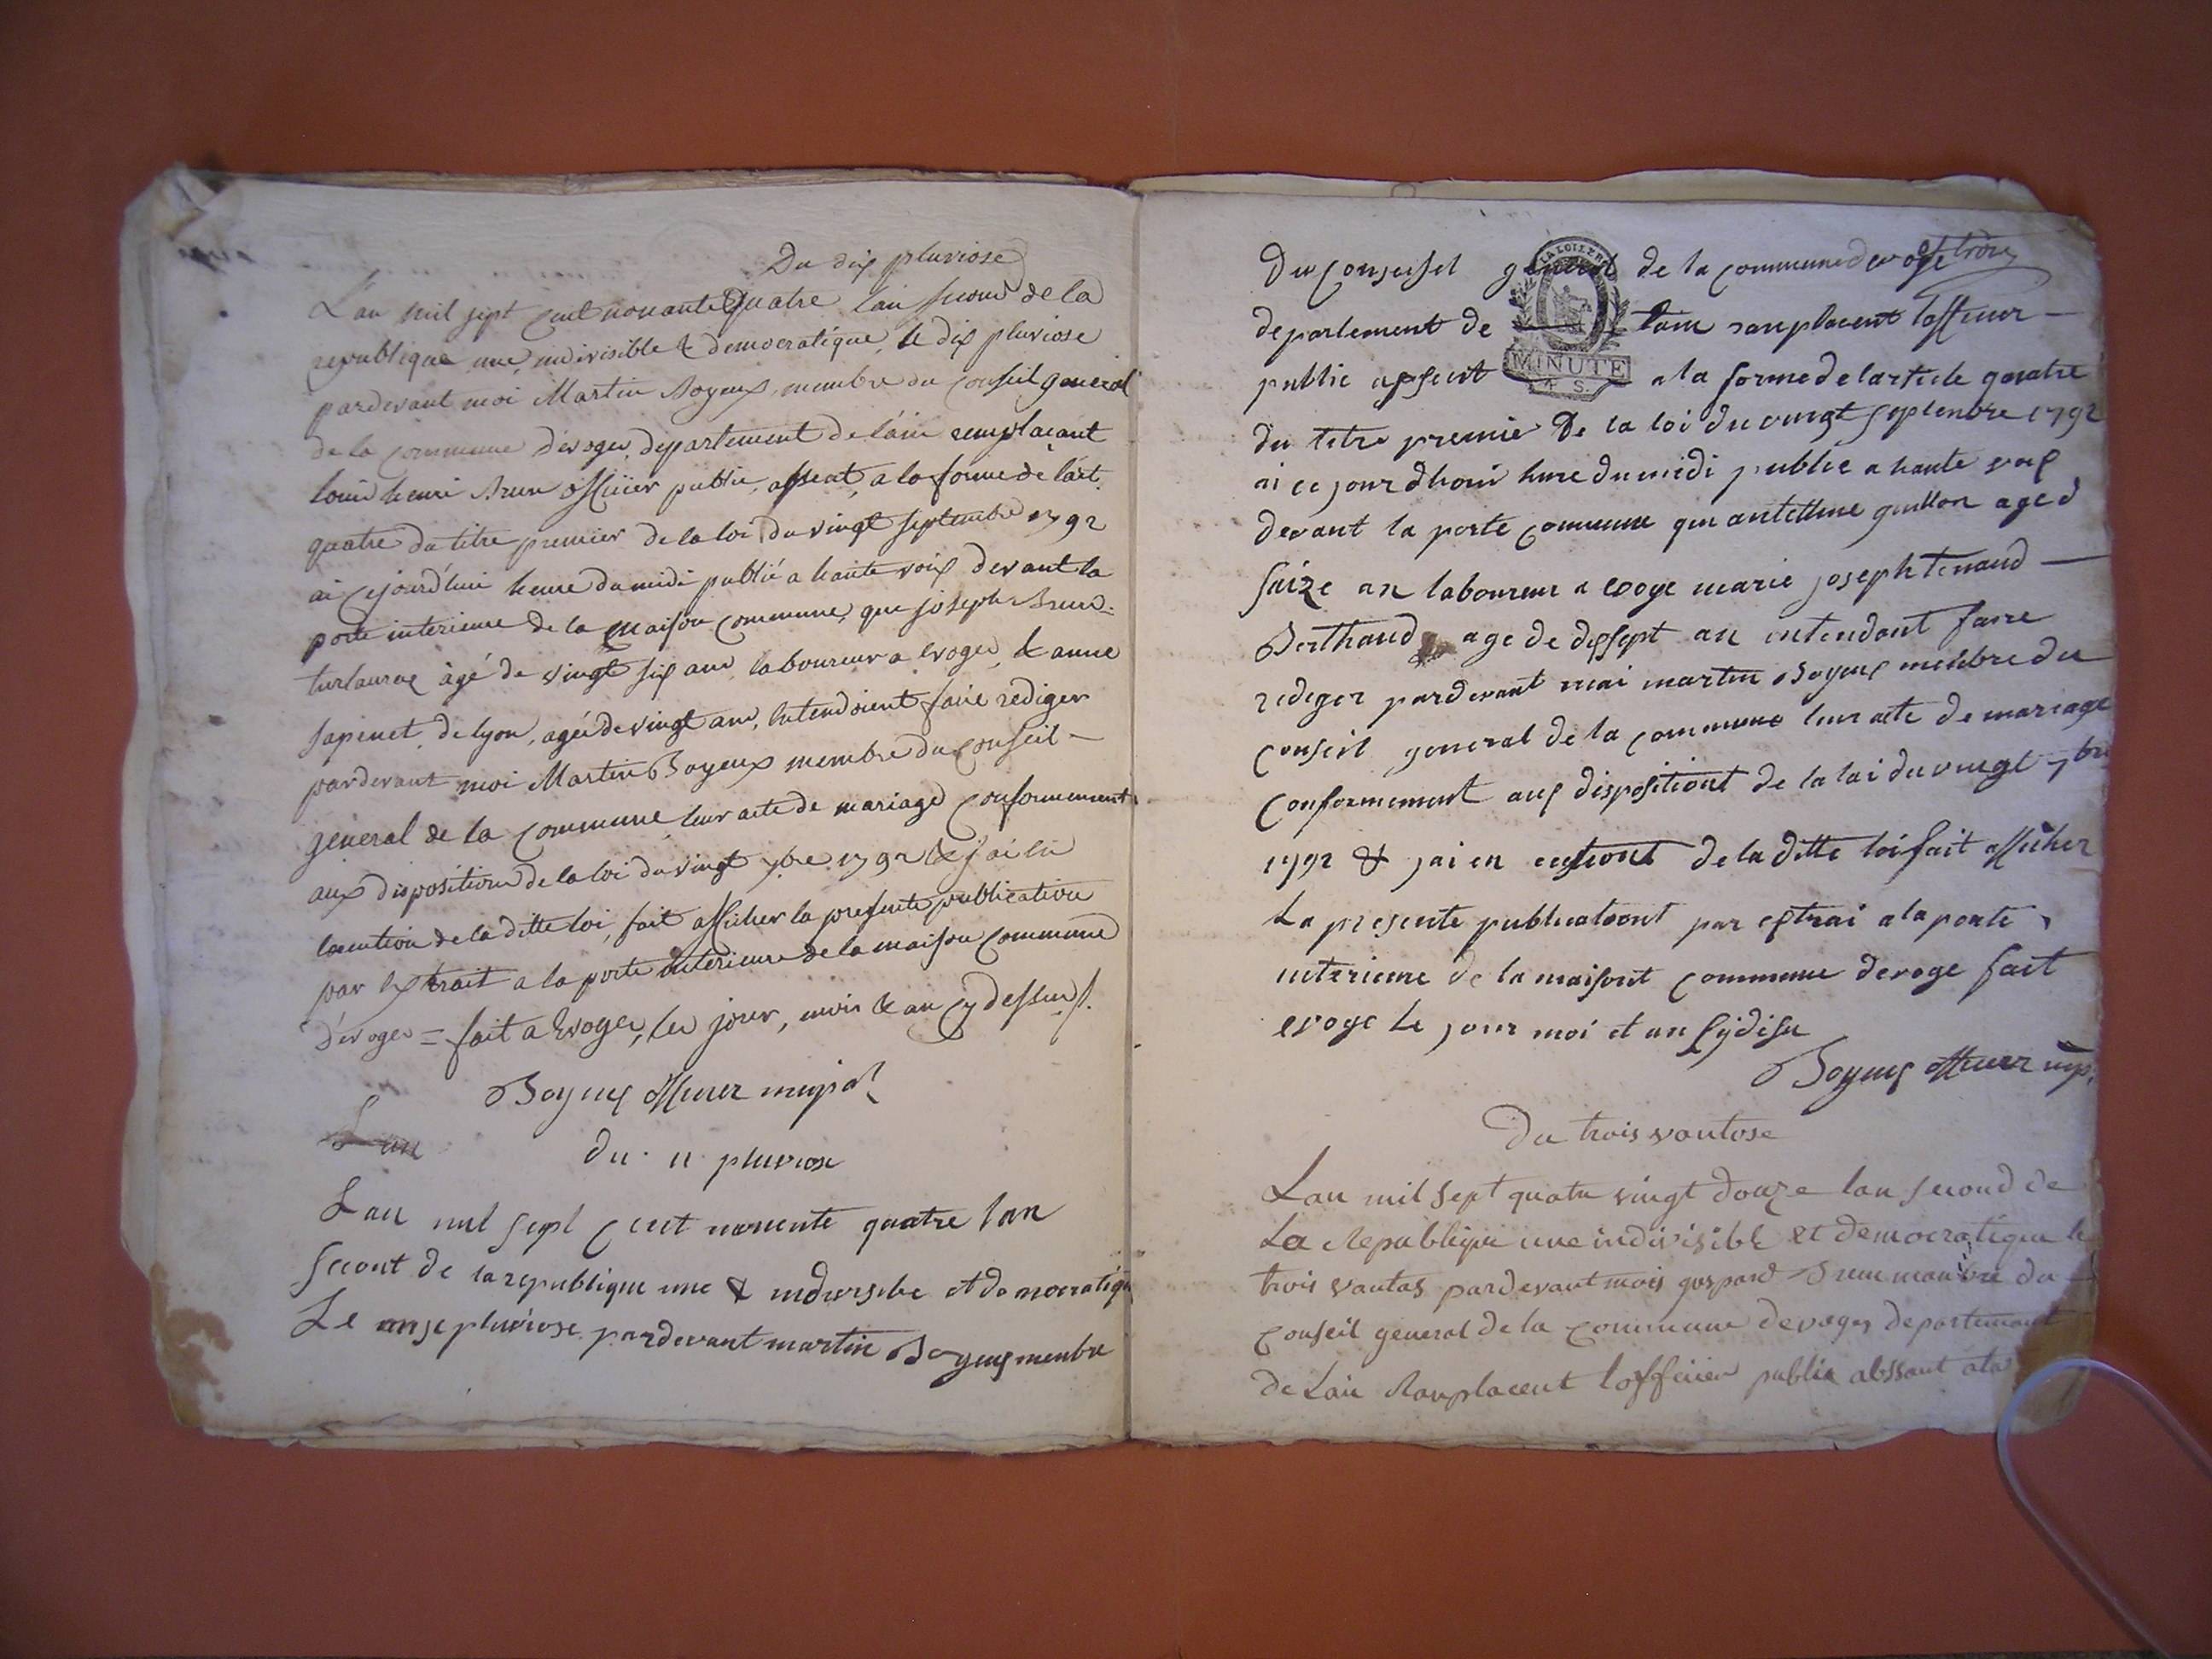 Du dix pluviose
L'an mil sept cent nonante quatre l'an second de la
republique une, indivisible & democratique, le dix pluviose
pardevant moi Martin Boyeux, membre du conseil general
de la commune d'evoges, departement de l'ain remplaçant
louis henri Brun officier public, absent, a la forme de l'art.
quatre du titre premier de la loi du vingt septembre 1792
ai cejourd'hui heure du midi publié a haute voix devant la
porte interieure de la maison commune, que joseph Brun
agé de vingt six ans, laboureur a evoges, & anne
sapinet, de lyon, agée de vingt ans, entendoient faire rediger
pardevant moi Martin Boyeux membre du conseil -
general de la commune leur acte de mariage conformement
aux dispositions de la loi du vingt 7bre 1792 & j'ai en
de la ditte loi, fait afficher la presente publication
par extrait a la porte interieure de la maison commune
d'evoges = fait a Evoges, les jour, mois & an cy dessus
Boyeux officier
L'an
du 11 pluviose
Lan mil sept cent nonente quatre lan
secont de la republique une & et democratique
Le onse pluviose pardevant martin Boyeux menbre
Du conseisel general de la commune devoge
departement de lain ranplacent
public apsent a la forme de larticle quatre
du titre premie De la loi du vingt septenbre 1792
ai ce jour dhoui hure du midi publie a haute voix
devant la porte commune que antelme guillon age d
saize an laboureur a evoge marie joseph tenand
Berthand age de dissept an entendont faire
rediger pardevant mai martin Boyeux menbre du
conseil general de la commune leur acte de mariage
conformement aux dispositiont de la lai du vingt 7bre
1792 & jai en de la ditte loi fait afficher
La presente publicationt par extrai a la porte
interieure de la maisont commune devoge fait
evoge le jour moi et an
Boyeux
Du trois vantose
Lan mil sept quatre vingt douze lan second de
La Republique une indivisible et democratique le
trois vantas pardevant mois gaspard Brun manbre du
conseil general de la commune devoges departemant
de Lain Ranplacent loffecier public abssant ala
LA LOI
MINUTE
4 S.